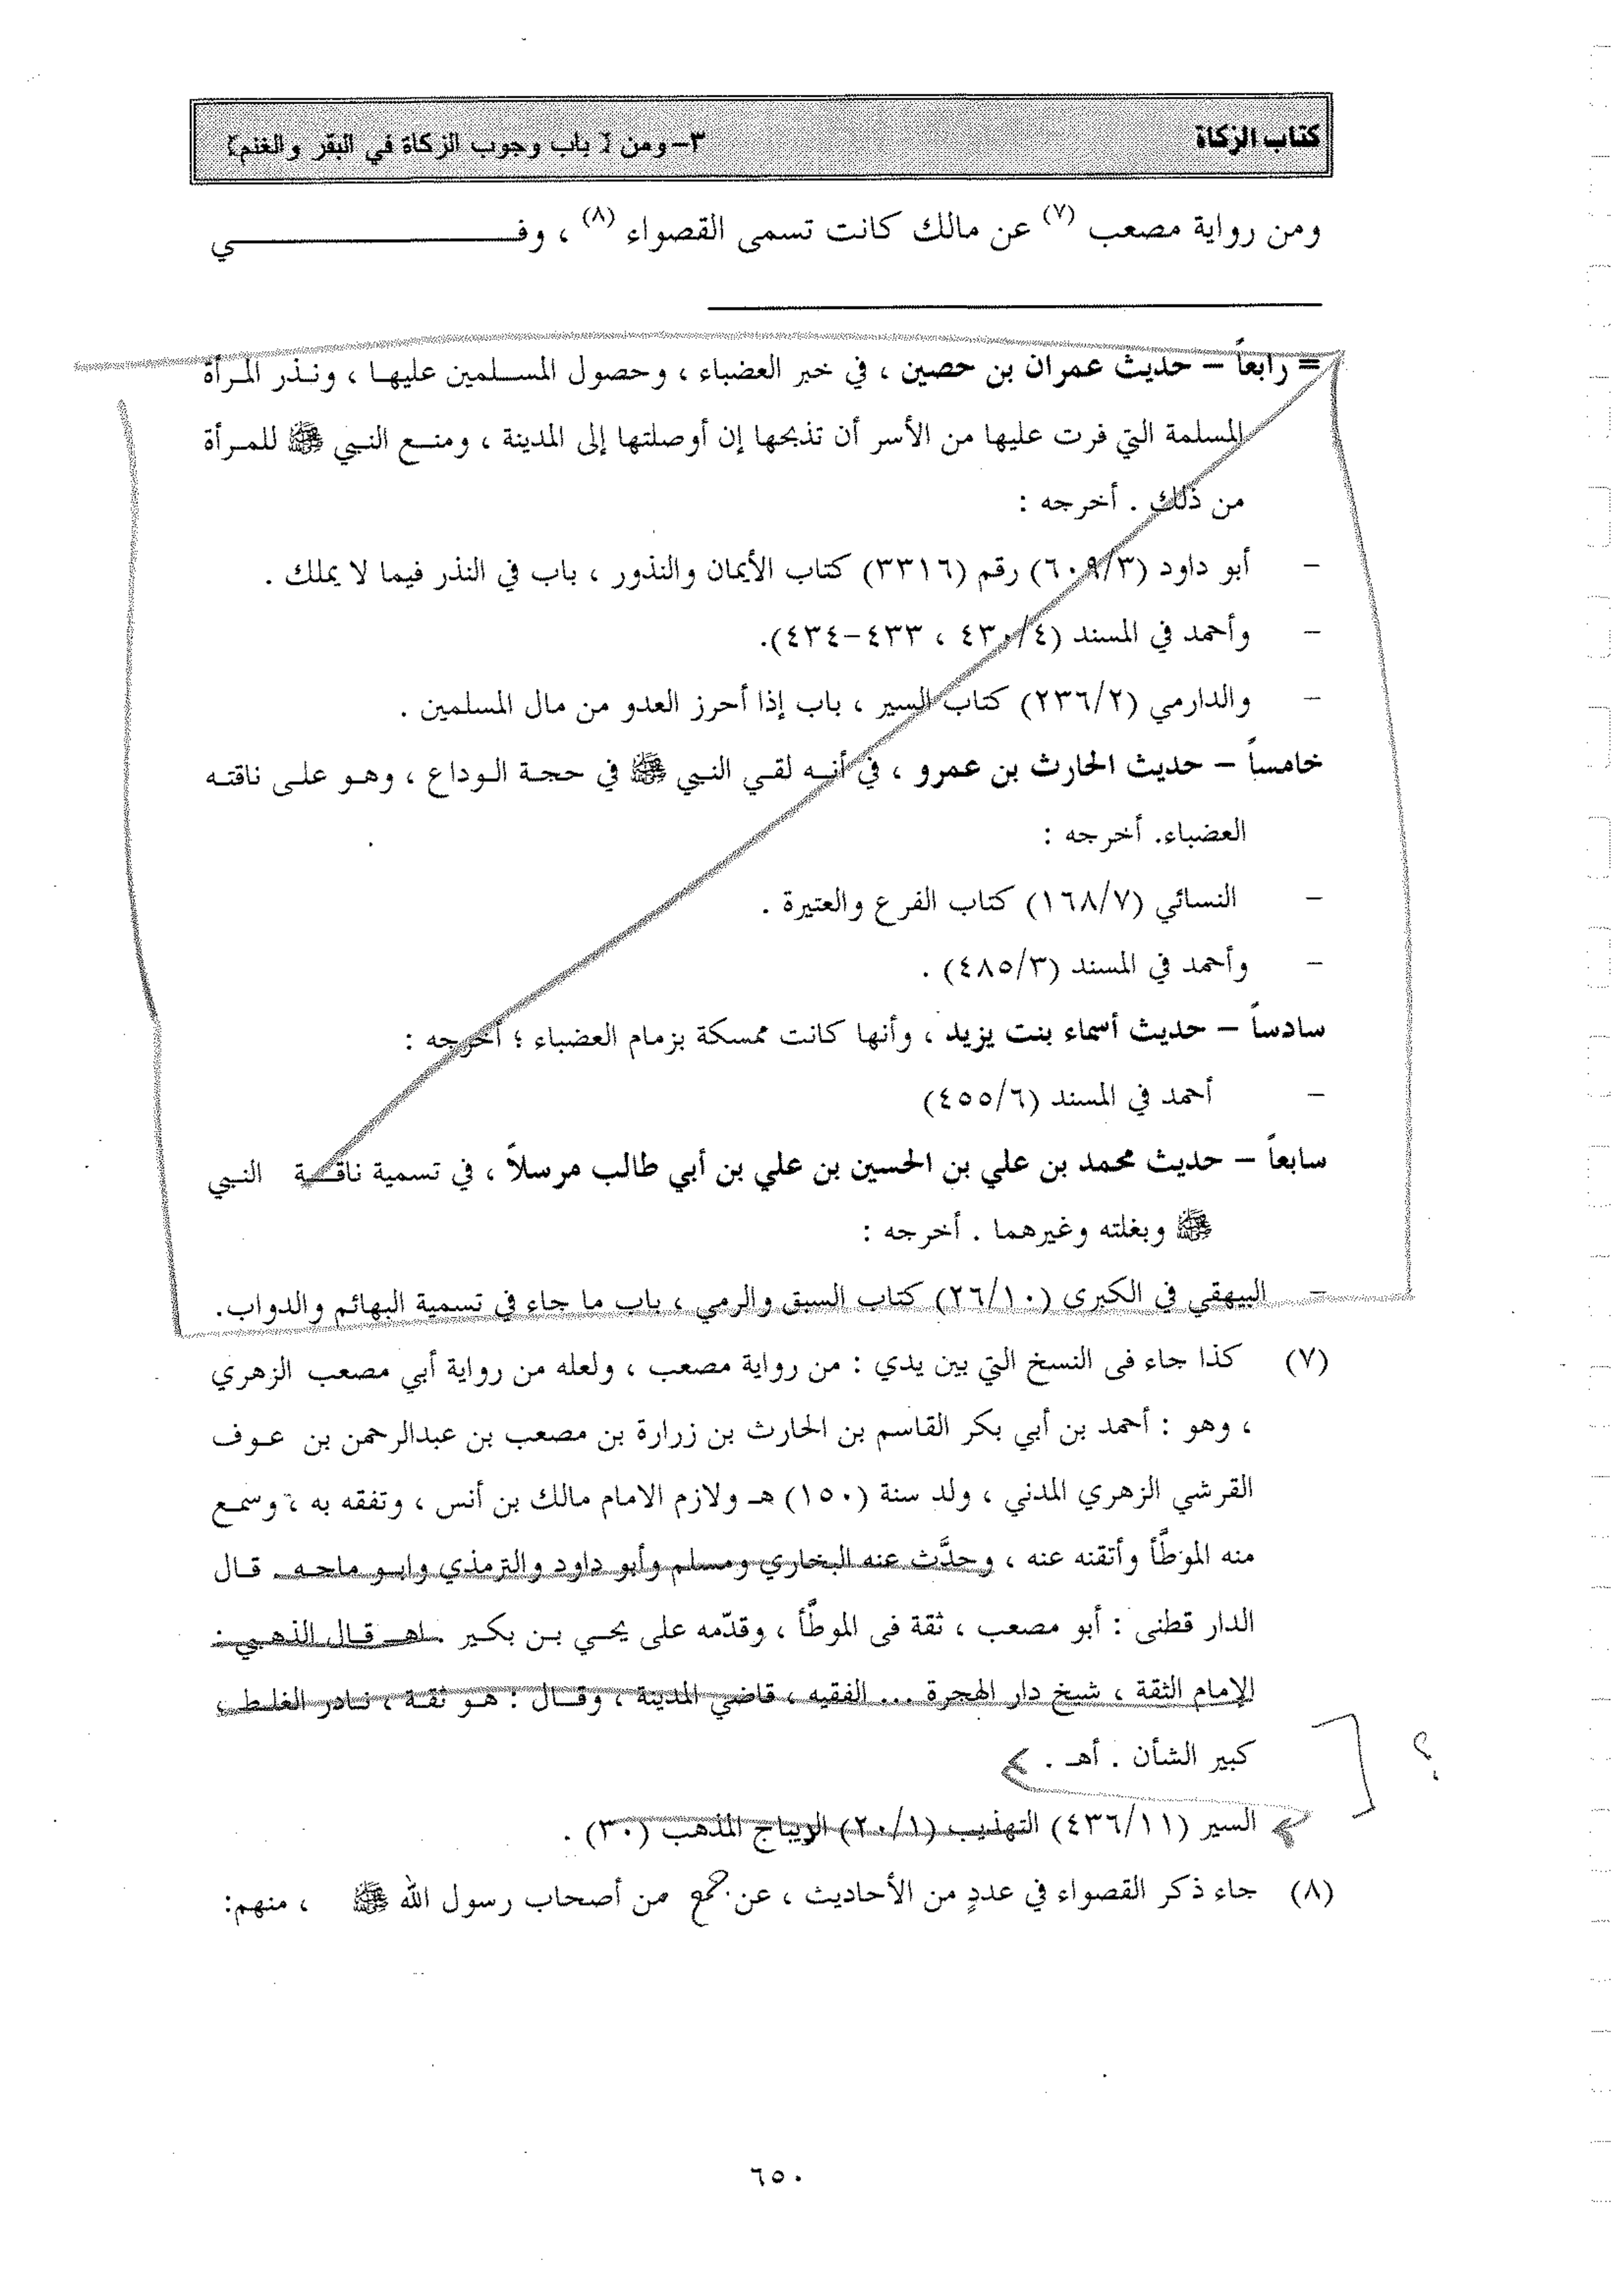 كتاب الزكاة
٣- ومن [ باب وجوب الزكاة في البقر والغنم]
ومن رواية مصعب (٧) عن مالك كانت تسمى القصواء (٨) ، وفـــــــــــي
= رابعاً – حديث عمران بن حصين ، في خبر العضباء ، وحصول المسلمين عليها ، ونذر المرأة
المسلمة التي فرت عليها من الأسر أن تذبحها إن أوصلتها إلى المدينة ، ومنع النبي ﷺ للمرأة
من ذلك . أخرجه :
– أبو داود (٦٠٩/٣) رقم (٣٣١٦) كتاب الأيمان والنذور ، باب في النذر فيما لا يملك .
– وأحمد في المسند (٤٣٠/٤ ، ٤٣٣-٤٣٤).
– والدارمي (٢٣٦/٢) كتاب السير ، باب إذا أحرز العدو من مال المسلمين .
خامساً – حديث الحارث بن عمرو ، في أنه لقي النبي ﷺ في حجة الوداع ، وهو على ناقته
العضباء. أخرجه :
– النسائي (١٦٨/٧) كتاب الفرع والعتيرة .
– وأحمد في المسند (٤٨٥/٣) .
سادساً – حديث أسماء بنت يزيد ، وأنها كانت ممسكة بزمام العضباء ؛ أخرجه :
– أحمد في المسند (٤٥٥/٦)
سابعاً – حديث محمد بن علي بن الحسين بن علي بن أبي طالب مرسلاً ، في تسمية ناقة النبي
ﷺ وبغلته وغيرهما . أخرجه :
– البيهقي في الكبرى (٢٦/١٠) كتاب السبق والرمي ، باب ما جاء في تسمية البهائم والدواب.
(٧) كذا جاء فى النسخ التي بين يدي : من رواية مصعب ، ولعله من رواية أبي مصعب الزهري
، وهو : أحمد بن أبي بكر القاسم بن الحارث بن زرارة بن مصعب بن عبدالرحمن بن عوف
القرشي الزهري المدني ، ولد سنة (١٥٠) هـ ولازم الامام مالك بن أنس ، وتفقه به ، وسمع
منه الموطَّأ وأتقنه عنه ، وحدَّث عنه البخاري ومسلم وأبو داود والترمذي وابو ماجه . قال
الدار قطنى : أبو مصعب ، ثقة فى الموطَّأ ، وقدّمه على يحيي بن بكير . اهـ قال الذهبي :
الإمام الثقة ، شيخ دار الهجرة ... الفقيه ، قاضي المدينة ، وقال : هو ثقة ، نادر الغلط ،
كبير الشأن . أهـ .
؟
السير (٤٣٦/١١) التهذيب (٢٠/١) الديباج المذهب (٣٠) .
(٨) جاء ذكر القصواء في عددٍ من الأحاديث ، عن جمع من أصحاب رسول الله ﷺ ، منهم:
٦٥٠